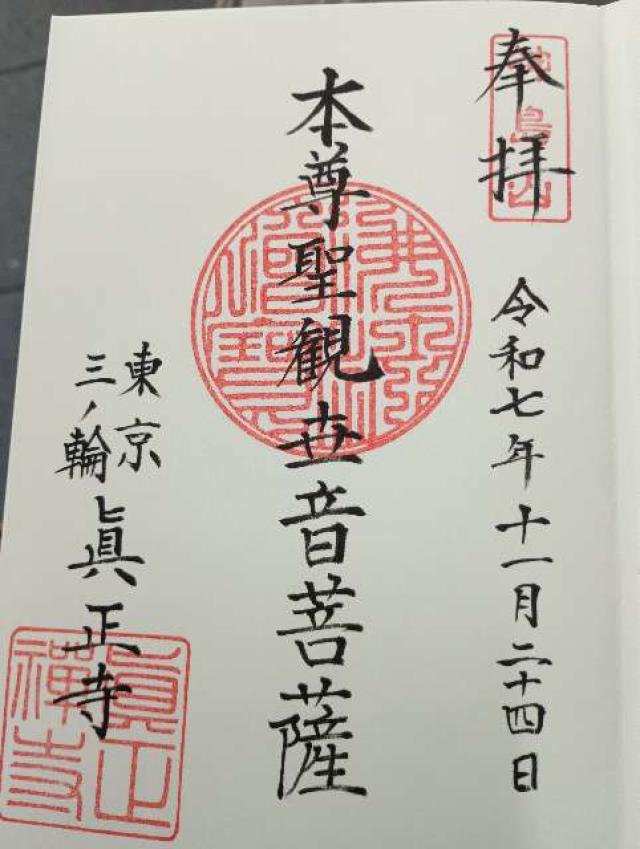 奉拝
令和七年十一月二十四日
本尊聖観世音菩薩
東京
三ノ輪
眞正寺
眞正
禅寺